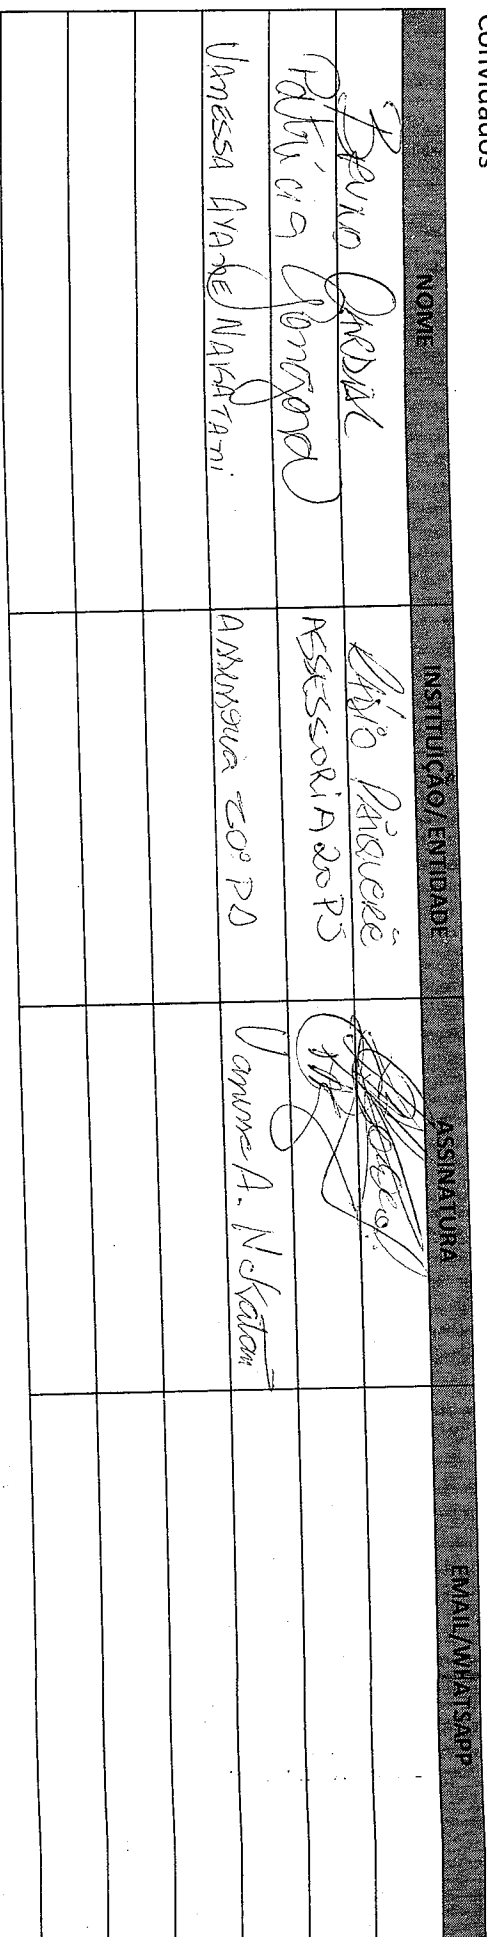 Convidados
NOME INSTITUIÇÃO/ ENTIDADE ASSINATURA EMAIL/WHATSAPP
Bruno Cardial Rádio Paiquerê
Patrícia ASSESSORIA 20 PJ
VANESSA AYANE NAKATANI Assessoria 20ª PJ Vanessa A. Nakatani